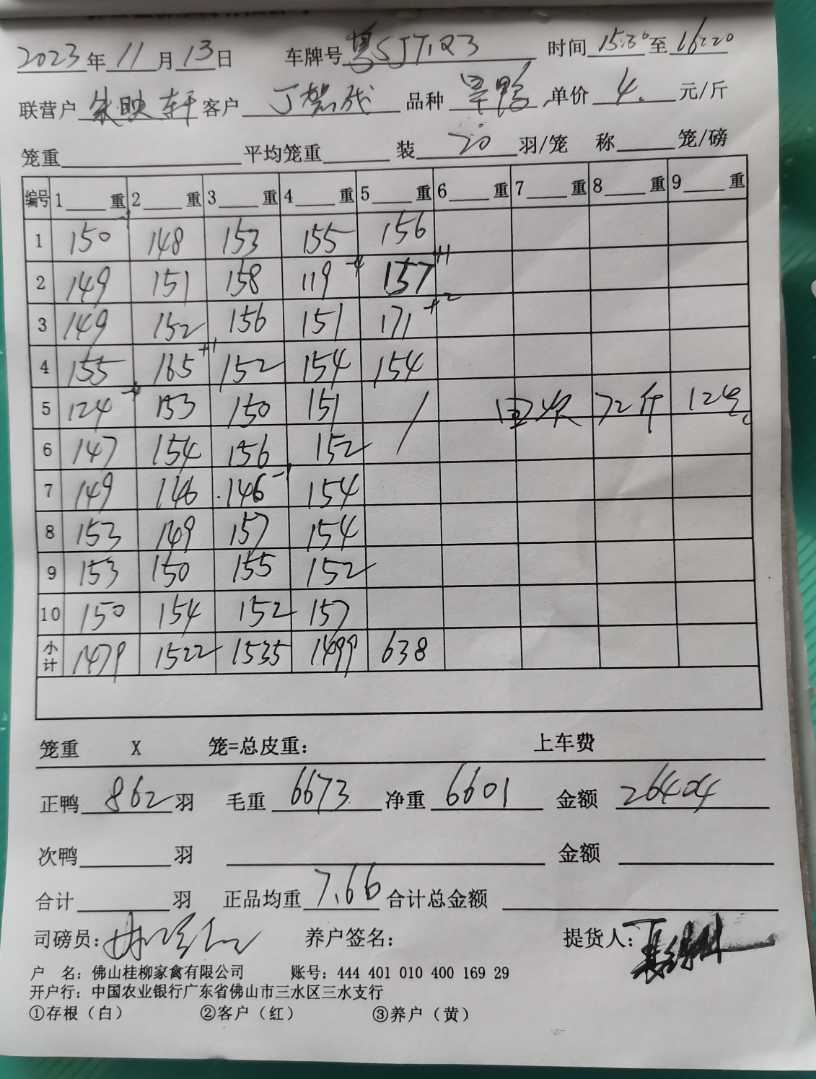 2023年11月13日 车牌号粤SJT1Q3 时间15:30至16:20
联营户朱映轩客户丁贺代 品种 旱鸭 单价 4. 元/斤
笼重 平均笼重 装 20 羽/笼 称 笼/磅
编号 1 重 2 重 3 重 4 重 5 重 6 重 7 重 8 重 9 重
1 150 148 153 155 156
2 149 151 158 119 -4 157 +1
3 149 152 156 151 171 +2
4 155 165 +1 152 154 154
5 124 -4 153 150 151 / 72斤 12只
6 147 154 156 152
7 149 146 146 -1 154
8 153 149 157 154
9 153 150 155 152
10 150 154 152 157
小计 1479 1522 1535 1499 638
笼重 X 笼=总皮重: 上车费
正鸭 862 羽 毛重 6673 净重 6601 金额 26404
次鸭 羽 金额
合计 羽 正品均重 7.66 合计总金额
司磅员: 养户签名: 提货人:
户 名: 佛山桂柳家禽有限公司 账号: 444 401 010 400 169 29
开户行: 中国农业银行广东省佛山市三水区三水支行
①存根（白） ②客户（红） ③养户（黄）